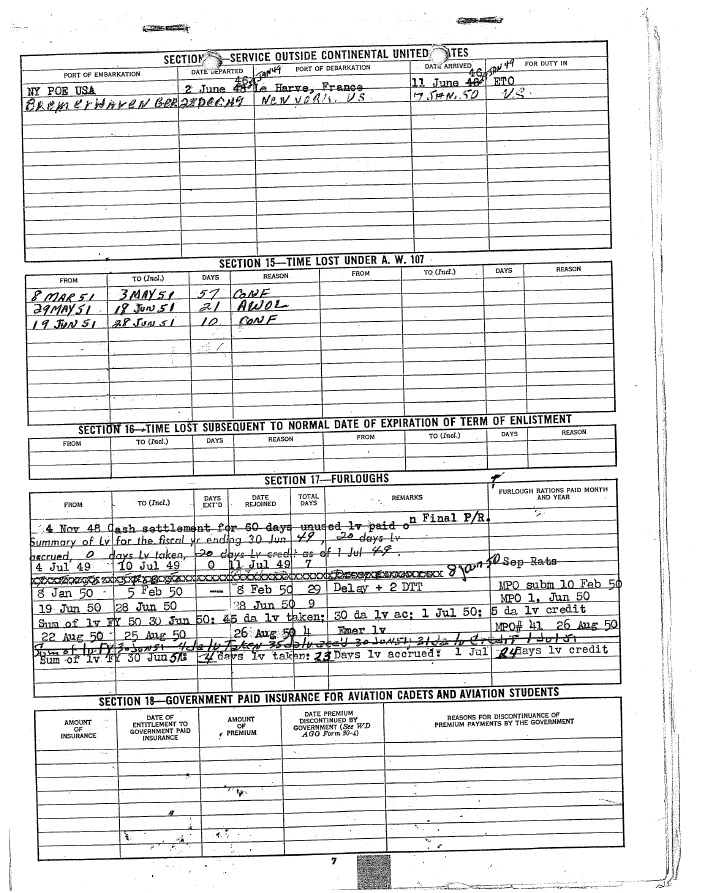 SECTION —SERVICE OUTSIDE CONTINENTAL UNITED TES
PORT OF EMBARKATION DATE DEPARTED PORT OF DEBARKATION DATE ARRIVED FOR DUTY IN
NY POE USA 2 June 46 Le Harve, France 11 June 46 ETO
BREMERHAVEN GER 28 DEC 49 NEW YORK, US 7 JAN. 50 U.S.
SECTION 15—TIME LOST UNDER A. W. 107
FROM TO (Incl.) DAYS REASON FROM TO (Incl.) DAYS REASON
8 MAR 51 3 MAY 51 57 CONF
29 MAY 51 18 JUN 51 21 AWOL
19 JUN 51 28 JUN 51 10 CONF
SECTION 16—TIME LOST SUBSEQUENT TO NORMAL DATE OF EXPIRATION OF TERM OF ENLISTMENT
FROM TO (Incl.) DAYS REASON FROM TO (Incl.) DAYS REASON
SECTION 17—FURLOUGHS
FROM TO (Incl.) DAYS EXT'D DATE REJOINED TOTAL DAYS REMARKS FURLOUGH RATIONS PAID MONTH AND YEAR
4 Nov 48 Cash settlement for 60 days unused lv paid on Final P/R.
Summary of Lv for the fiscal yr ending 30 Jun 49, 20 days lv
accrued, 0 days lv taken, 20 days lv credit as of 1 Jul 49.
4 Jul 49 10 Jul 49 0 11 Jul 49 7
8 Jan 50 Sep Rats
8 Jan 50 5 Feb 50 --- 8 Feb 50 29 Delay + 2 DTT MPO subm 10 Feb 50
19 Jun 50 28 Jun 50 28 Jun 50 9 MPO 1, Jun 50
Sum of lv FY 50 30 Jun 50: 45 da lv taken; 30 da lv ac; 1 Jul 50: 5 da lv credit
22 Aug 50 - 25 Aug 50 26 Aug 50 4 Emer lv MPO# 41 26 Aug 50
Sum of lv FY 30 Jun 51: 4 da lv Taken
Sum of lv FY 30 Jun 51: 4 days lv taken: 23 Days lv accrued: 1 Jul 24 days lv credit
SECTION 18—GOVERNMENT PAID INSURANCE FOR AVIATION CADETS AND AVIATION STUDENTS
AMOUNT OF INSURANCE DATE OF ENTITLEMENT TO GOVERNMENT PAID INSURANCE AMOUNT OF PREMIUM DATE PREMIUM DISCONTINUED BY GOVERNMENT (See WD AGO Form 30-4) REASONS FOR DISCONTINUANCE OF PREMIUM PAYMENTS BY THE GOVERNMENT
7